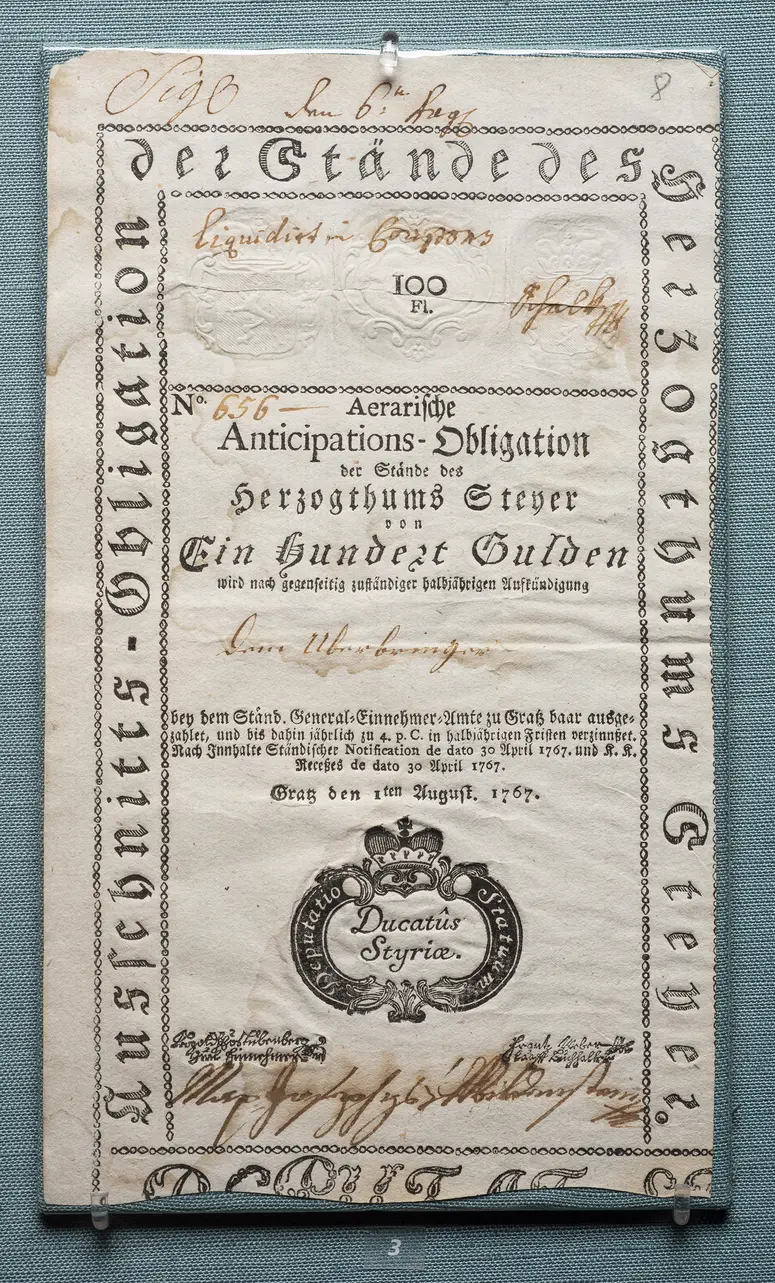 8
den 6.
Ausschnitts-Obligation
der Stände des
Herzogthums Steyer.
Liquidirt in Coupons
100
Fl.
No. 656 —
Aerarische
Anticipations-Obligation
der Stände des
Herzogthums Steyer
von
Ein Hundert Gulden
wird nach gegenseitig zuständiger halbjährigen Aufkündigung
dem Uberbringer
bey dem Ständ. General-Einnehmer-Amte zu Gratz baar ausge-
zahlet, und bis dahin jährlich zu 4. p. C. in halbjährigen Fristen verzinnßet.
Nach Innhalte Ständischer Notification de dato 30 April 1767. und K. K.
Receßes de dato 30 April 1767.
Gratz den 1ten August. 1767.
Deputatio Statuum
Ducatûs
Styriæ.
3